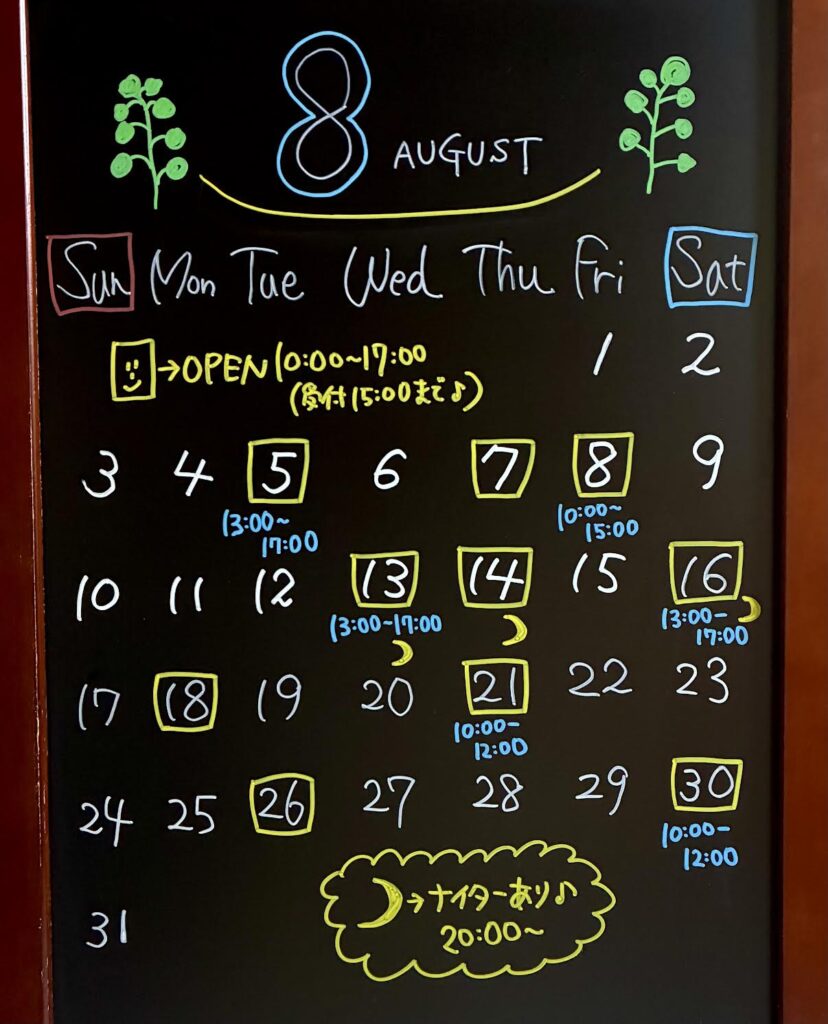 8 AUGUST
Sun Mon Tue Wed Thu Fri Sat
→OPEN 10:00~17:00
(受付15:00まで♪)
1 2
3 4 5 6 7 8 9
13:00~
17:00
10:00~
15:00
10 11 12 13 14 15 16
13:00~17:00
13:00-
17:00
17 18 19 20 21 22 23
10:00-
12:00
24 25 26 27 28 29 30
10:00-
12:00
31
→ナイターあり♪
20:00~